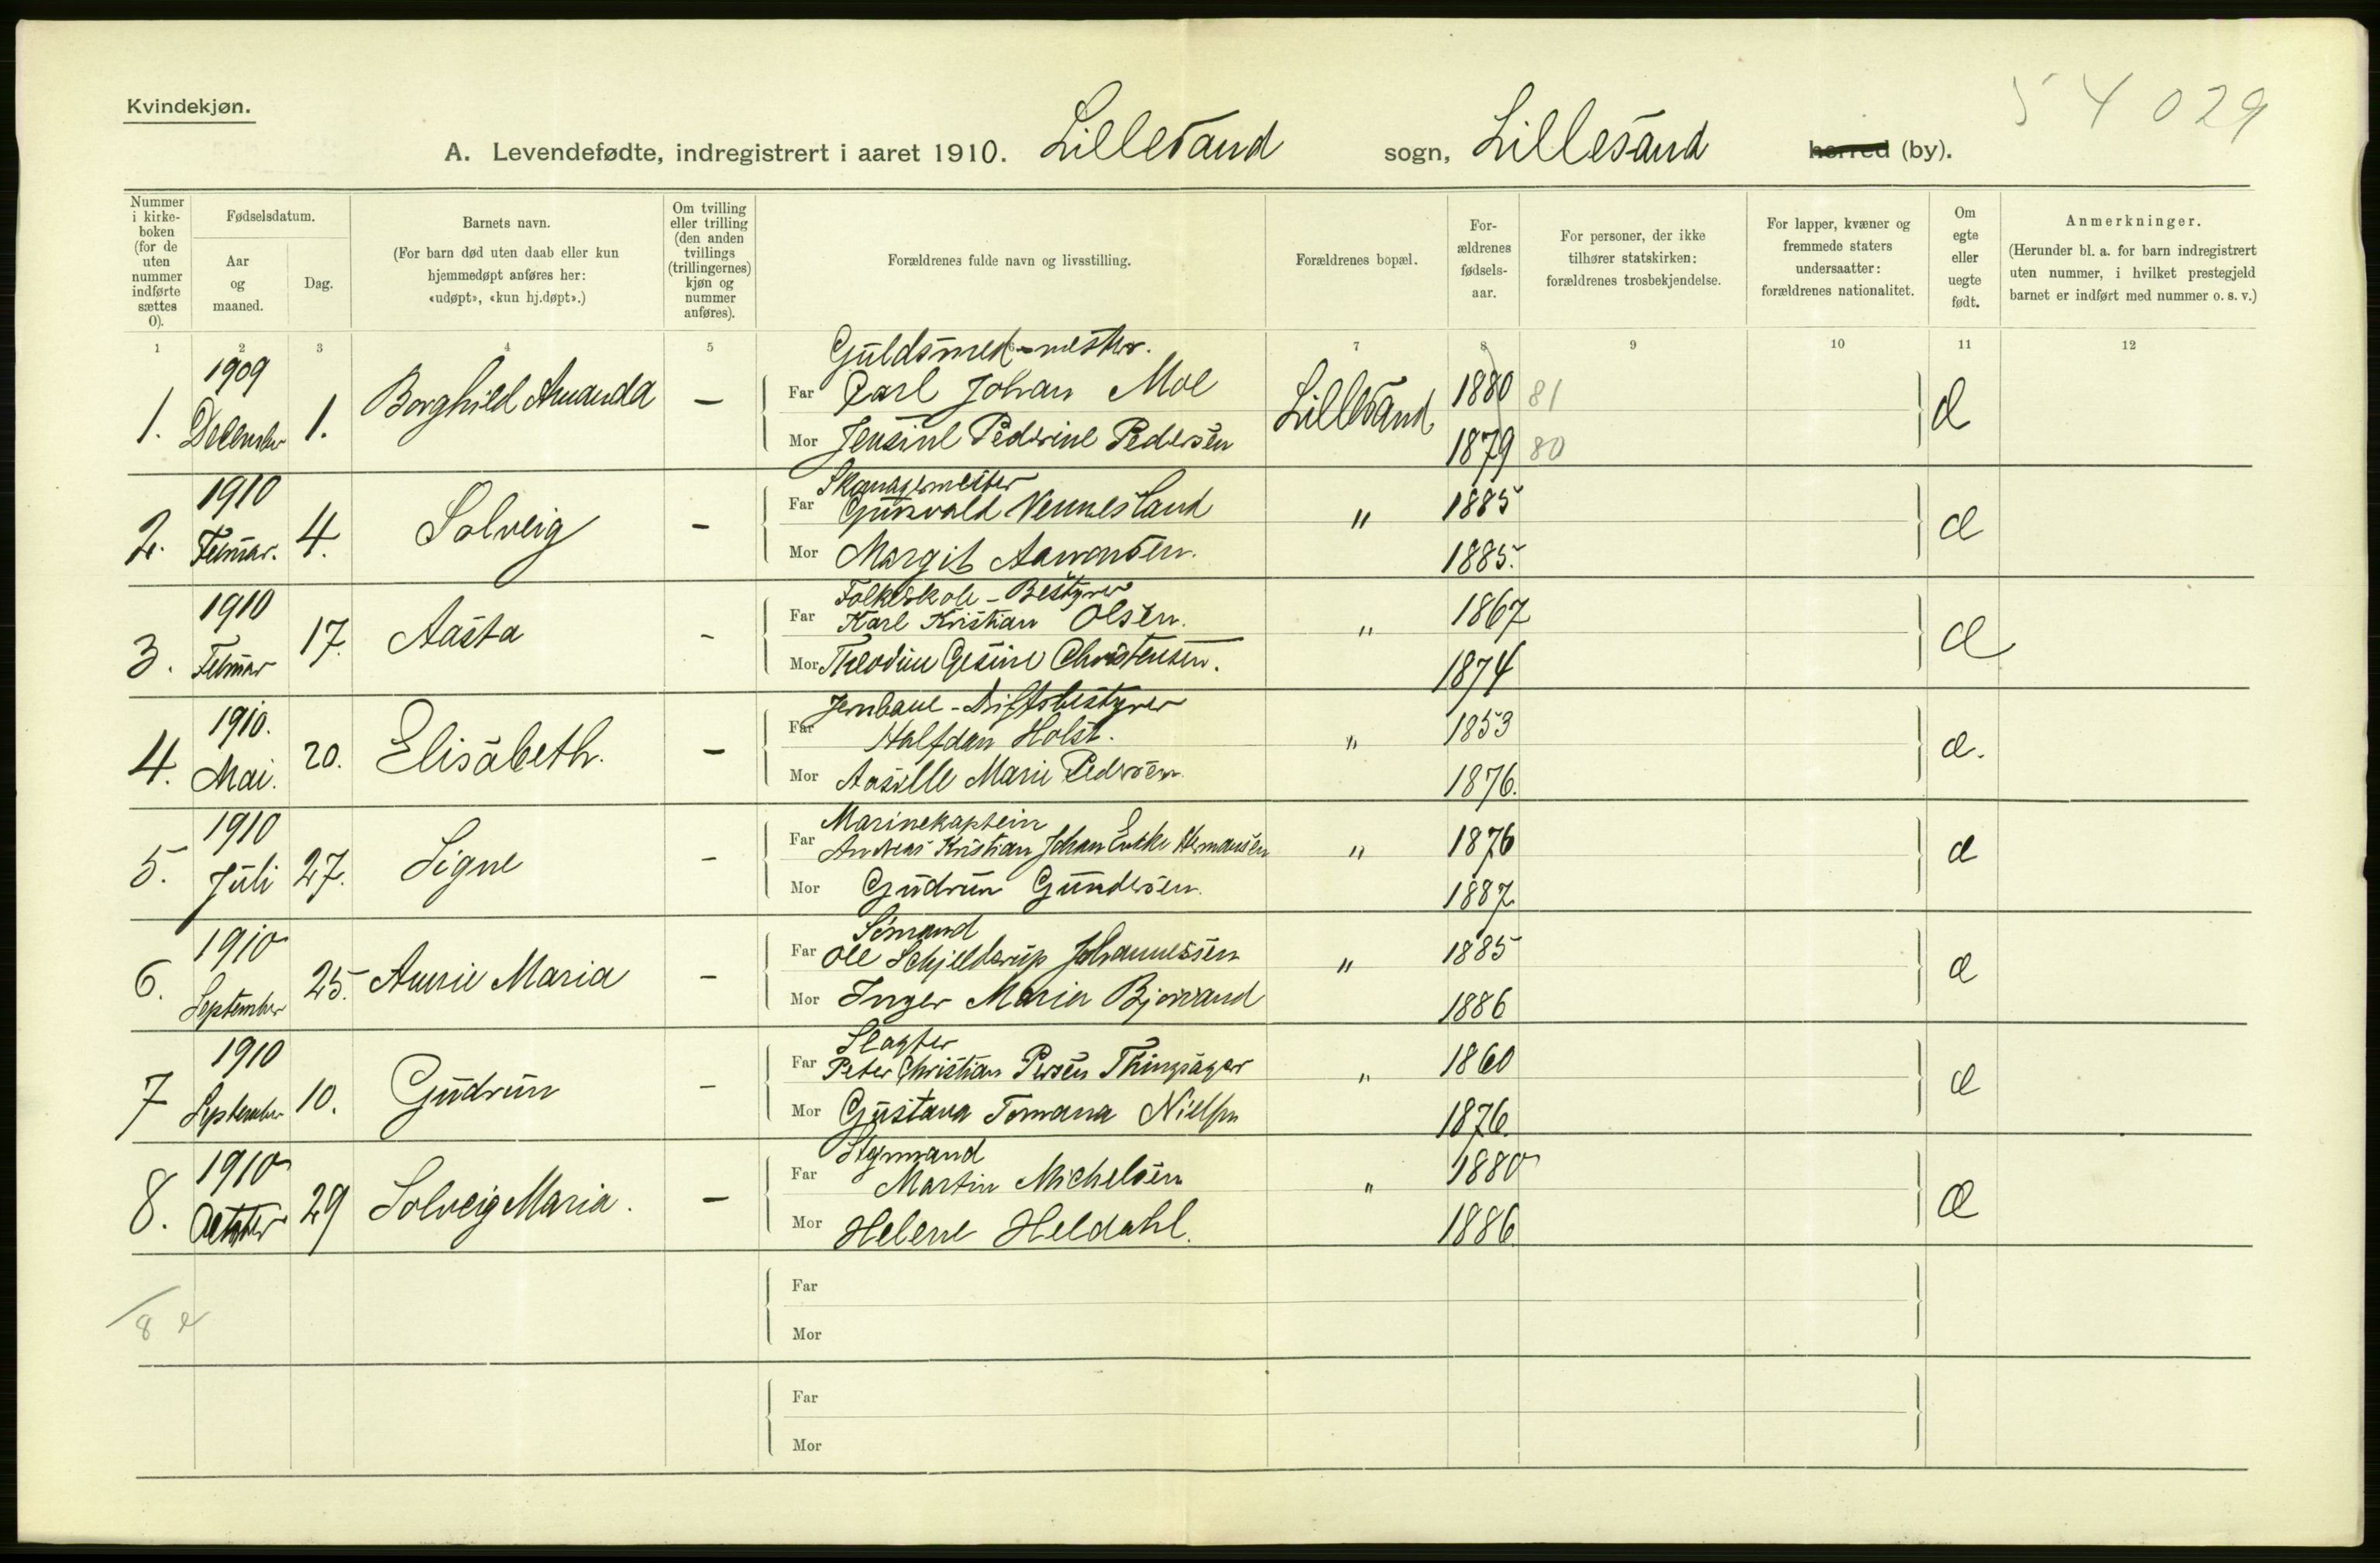 Kvindekjøn.
54029
A. Levendefødte, indregistrert i aaret 1910. Lillesand sogn, Lillesand herred (by).
Nummer i kirke-boken (for de uten nummer indførte sættes 0).
Fødselsdatum.
Aar og maaned.
Dag.
Barnets navn.
(For barn død uten daab eller kun hjemmedøpt anføres her: «udøpt», «kun hj.døpt».)
Om tvilling eller trilling (den anden tvillings (trillingernes) kjøn og nummer anføres).
Forældrenes fulde navn og livsstilling.
Forældrenes bopæl.
For-ældrenes fødsels-aar.
For personer, der ikke tilhører statskirken: forældrenes trosbekjendelse.
For lapper, kvæner og fremmede staters undersaatter: forældrenes nationalitet.
Om egte eller uegte født.
Anmerkninger.
(Herunder bl. a. for barn indregistrert uten nummer, i hvilket prestegjeld barnet er indført med nummer o. s. v.)
1 2 3 4 5 6 7 8 9 10 11 12
1909 Guldsmed-mester.
1. December 1. Borghild Amanda - Far Carl Johan Moe Lillesand 1880 81 e
Mor Jensine Pederine Pedersen 1879 80
1910 Skomagermester
2. Februar. 4. Solveig - Far Gunvald Vennesland " 1885 e
Mor Margit Aamondsen. 1885.
1910 Folkeskole-Bestyrer
3. Februar 17. Aasta - Far Karl Kristian Olsen. " 1867 e
Mor Theodine Gesine Christensen. 1874
1910. Jernbane-Driftsbestyrer
4. Mai. 20. Elisabeth. - Far Halfdan Holst. " 1853 e.
Mor Aasille Marie Pedersen. 1876.
1910 Marinekaptein
5. Juli 27. Signe - Far Andreas Kristian Johan Hermansen " 1876 e
Mor Gudrun Gundersen. 1887
1910 Sømand
6. September 25. Annie Maria - Far Ole Schjelderup Johannessen " 1885 e
Mor Inger Marie Bjorvand 1886
1910 Slagter
7 September 10. Gudrun - Far Peter Christian Persen Thingsager " 1860 e
Mor Gustava Tomana Nielsen 1876.
1910 Styrmand
8. October 29 Solveig Maria. - Far Martin Michelsen " 1880 e
Mor Helene Heldahl. 1886.
Far
8 e
Mor
Far
Mor